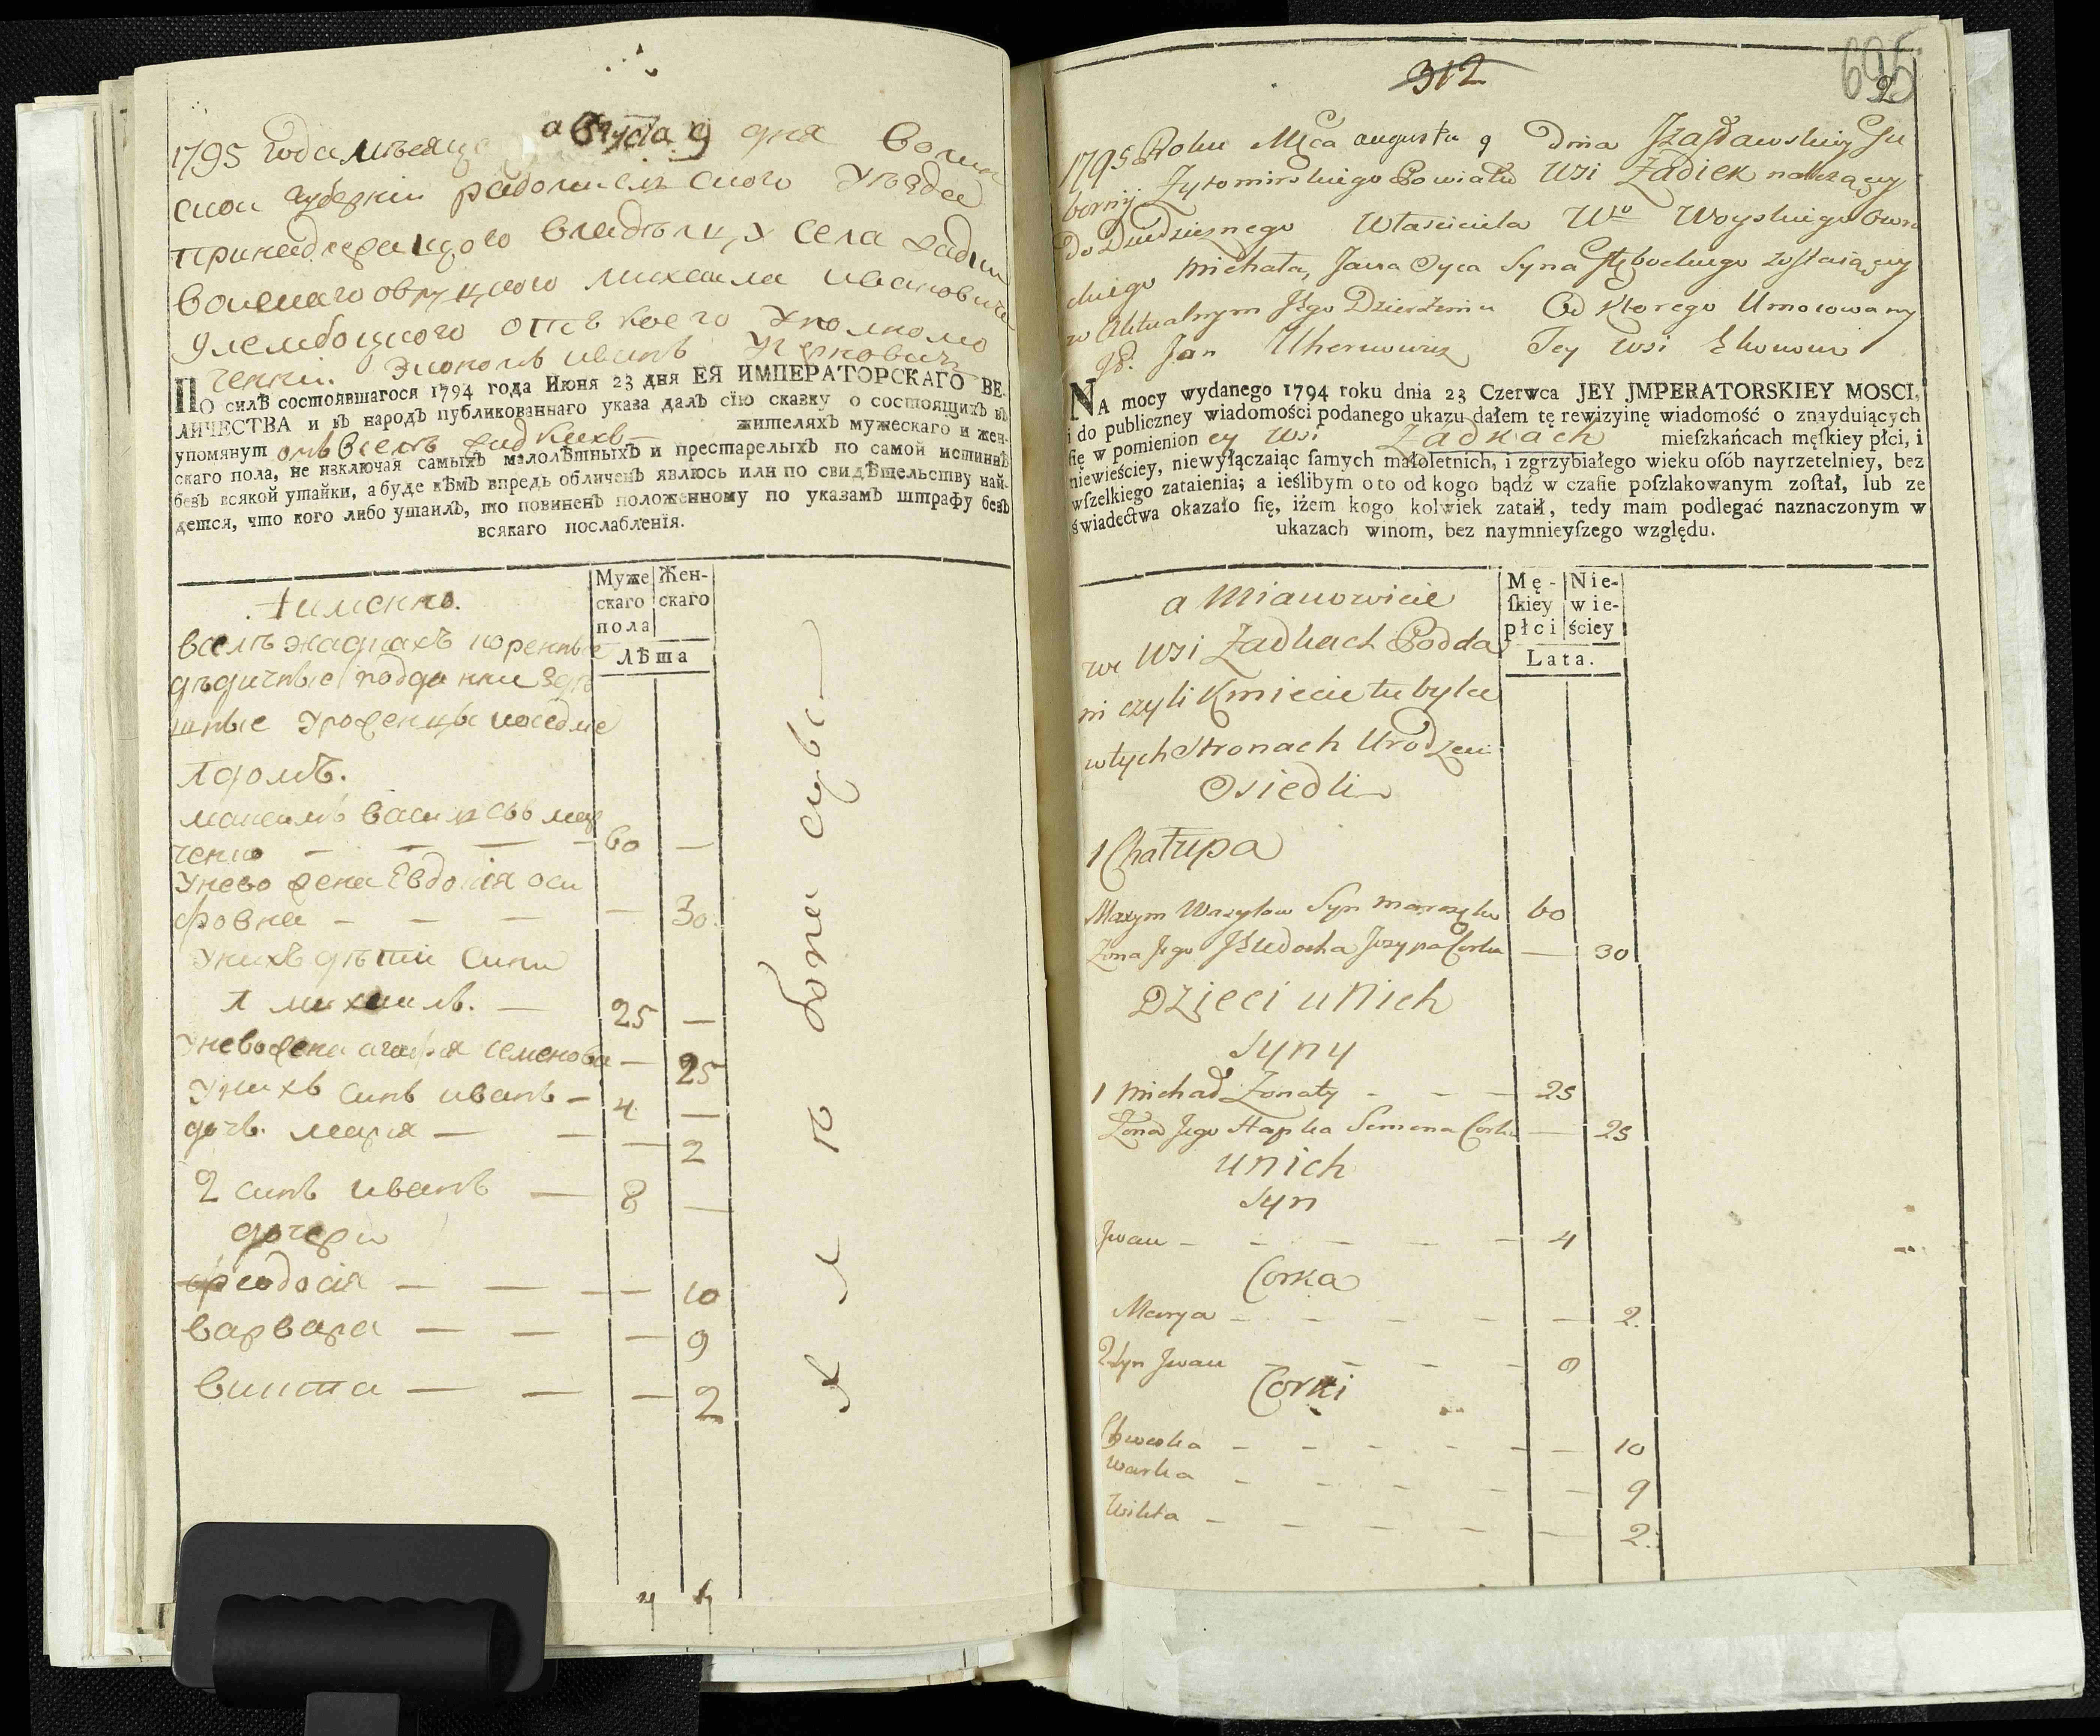 1795 года мѣсяца августа 9 дня Волин
ской губернии радомисл ского уѣзда
принадлежащого села
михаила ивановича
от коего уполномо
ченний Экономъ иванъ
ПО силѣ состоявшагося 1794 года Июня 23 дня ЕЯ ИМПЕРАТОРСКАГО ВЕ-
ЛИЧЕСТВА и въ народъ публикованнаго указа далъ сїю сказку о состоящихъ въ
упомянут омъ Селѣ жадкахъ жителяхъ мужескаго и жен-
скаго пола, не изключая самыхъ малолѣтныхъ и престарелыхъ по самой истиннѣ
безъ всякой утайки, а буде кѣмъ впредь обличенъ явлюсь или по свидѣтельству най-
дется, что кого либо утаилъ, то повиненъ положенному по указамъ штрафу безъ
всякаго послабленїя.
Аименно.
Муже
скаго
пола
Жен-
скаго
Лѣта
Въселѣ жадкахъ коренные
дѣдичные поддании здѣ
шные уроженцы
1 домъ.
максимъ васил
ченко — — — 60 —
Унево жена Евдокия оси
фовна — — — — 30.
Унихъ дѣтий Сини
1 михаилъ. — 25 —
Унево жена агафия семенова — 25
Унихъ синъ иванъ — 4 —
дочь. мария — — — 2
2 синъ иванъ — 8 —
дочери
феодосия — — — — 10
варвара — — — 9
викта — — — 2
к л ю бопи сувс
4 4
312
695
2
1795 Roku Mca augusta 9 Dnia Jzasławskiey Gu
bernij Zytomirskiego Powiatu Wsi Żadiek należącey
do Dziedzicznego Własciciela Wgo Woyskiego Owru
ckiego Michała, Jana Oyca Syna zostaiącey
w Aktualnym Jego Dzierżeniu Od Ktorego Umocowany
Jan Tey Wsi Ekonom
NA mocy wydanego 1794 roku dnia 23 Czerwca JEY JMPERATORSKIEY MOSCI,
i do publiczney wiadomości podanego ukazu dałem tę rewizyinę wiadomość o znayduiących
ſię w pomienion ey wsi Żadkach mieſzkańcach męſkiey płci, i
niewieściey, niewyłączaiąc ſamych małoletnich, i zgrzybiałego wieku oſób nayrzetelniey, bez
wſzelkiego zataienia; a ieślibym o to od kogo bądź w czaſie poſzlakowanym zoſtał, lub ze
świadectwa okazało ſię, iżem kogo kolwiek zataił, tedy mam podlegać naznaczonym w
ukazach winom, bez naymnieyſzego względu.
a Mianowicie
Mę-
ſkiey
płci
Nie-
wie-
ściey
Lata.
we Wsi Żadkach Podda
ni czyli Kmiecie tu bylce
w tych Stronach Urodzeni
Osiedli
1 Chałupa
Maxym Wasylow Syn 60
Zona Jego Jewdocha Jozypa Corka — 30
Dzieci u Nich
Syny
1 Michał Zonaty - - - 25
Zona Jego Hapka Semena Corka — 25
unich
Syn
Jwan - - - - - 4
Corka
Marya - - - - - — 2.
2 Syn Jwan - - - - 8
Corki
Chweska - - - - - — 10
Warka - - - - - — 9
Wikta - - - - - — 2.